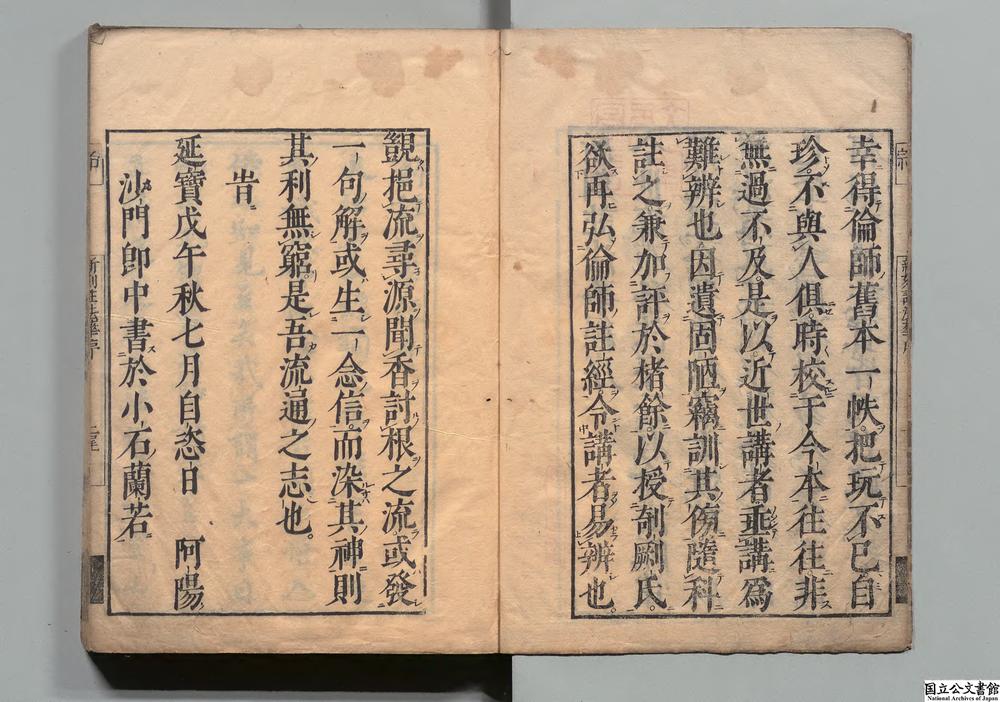 幸得倫師舊本一帙把玩不已自
珍不與人俱時校于今本往往非
無過不及是以近世講者乖講爲
難辨也因遺固陋竊訓其傍隨科
註之兼加評於楮餘以授剞劂氏
欲再弘倫師註經令講者易辨也。
観挹流尋源聞香討根之流或發
一句解或生一念信而染其神則
其利無窮是吾流通之志也。
旹
延寶戊午秋七月自恣日 阿陽
沙門卽中書於小石蘭若
国立公文書館
National Archives of Japan